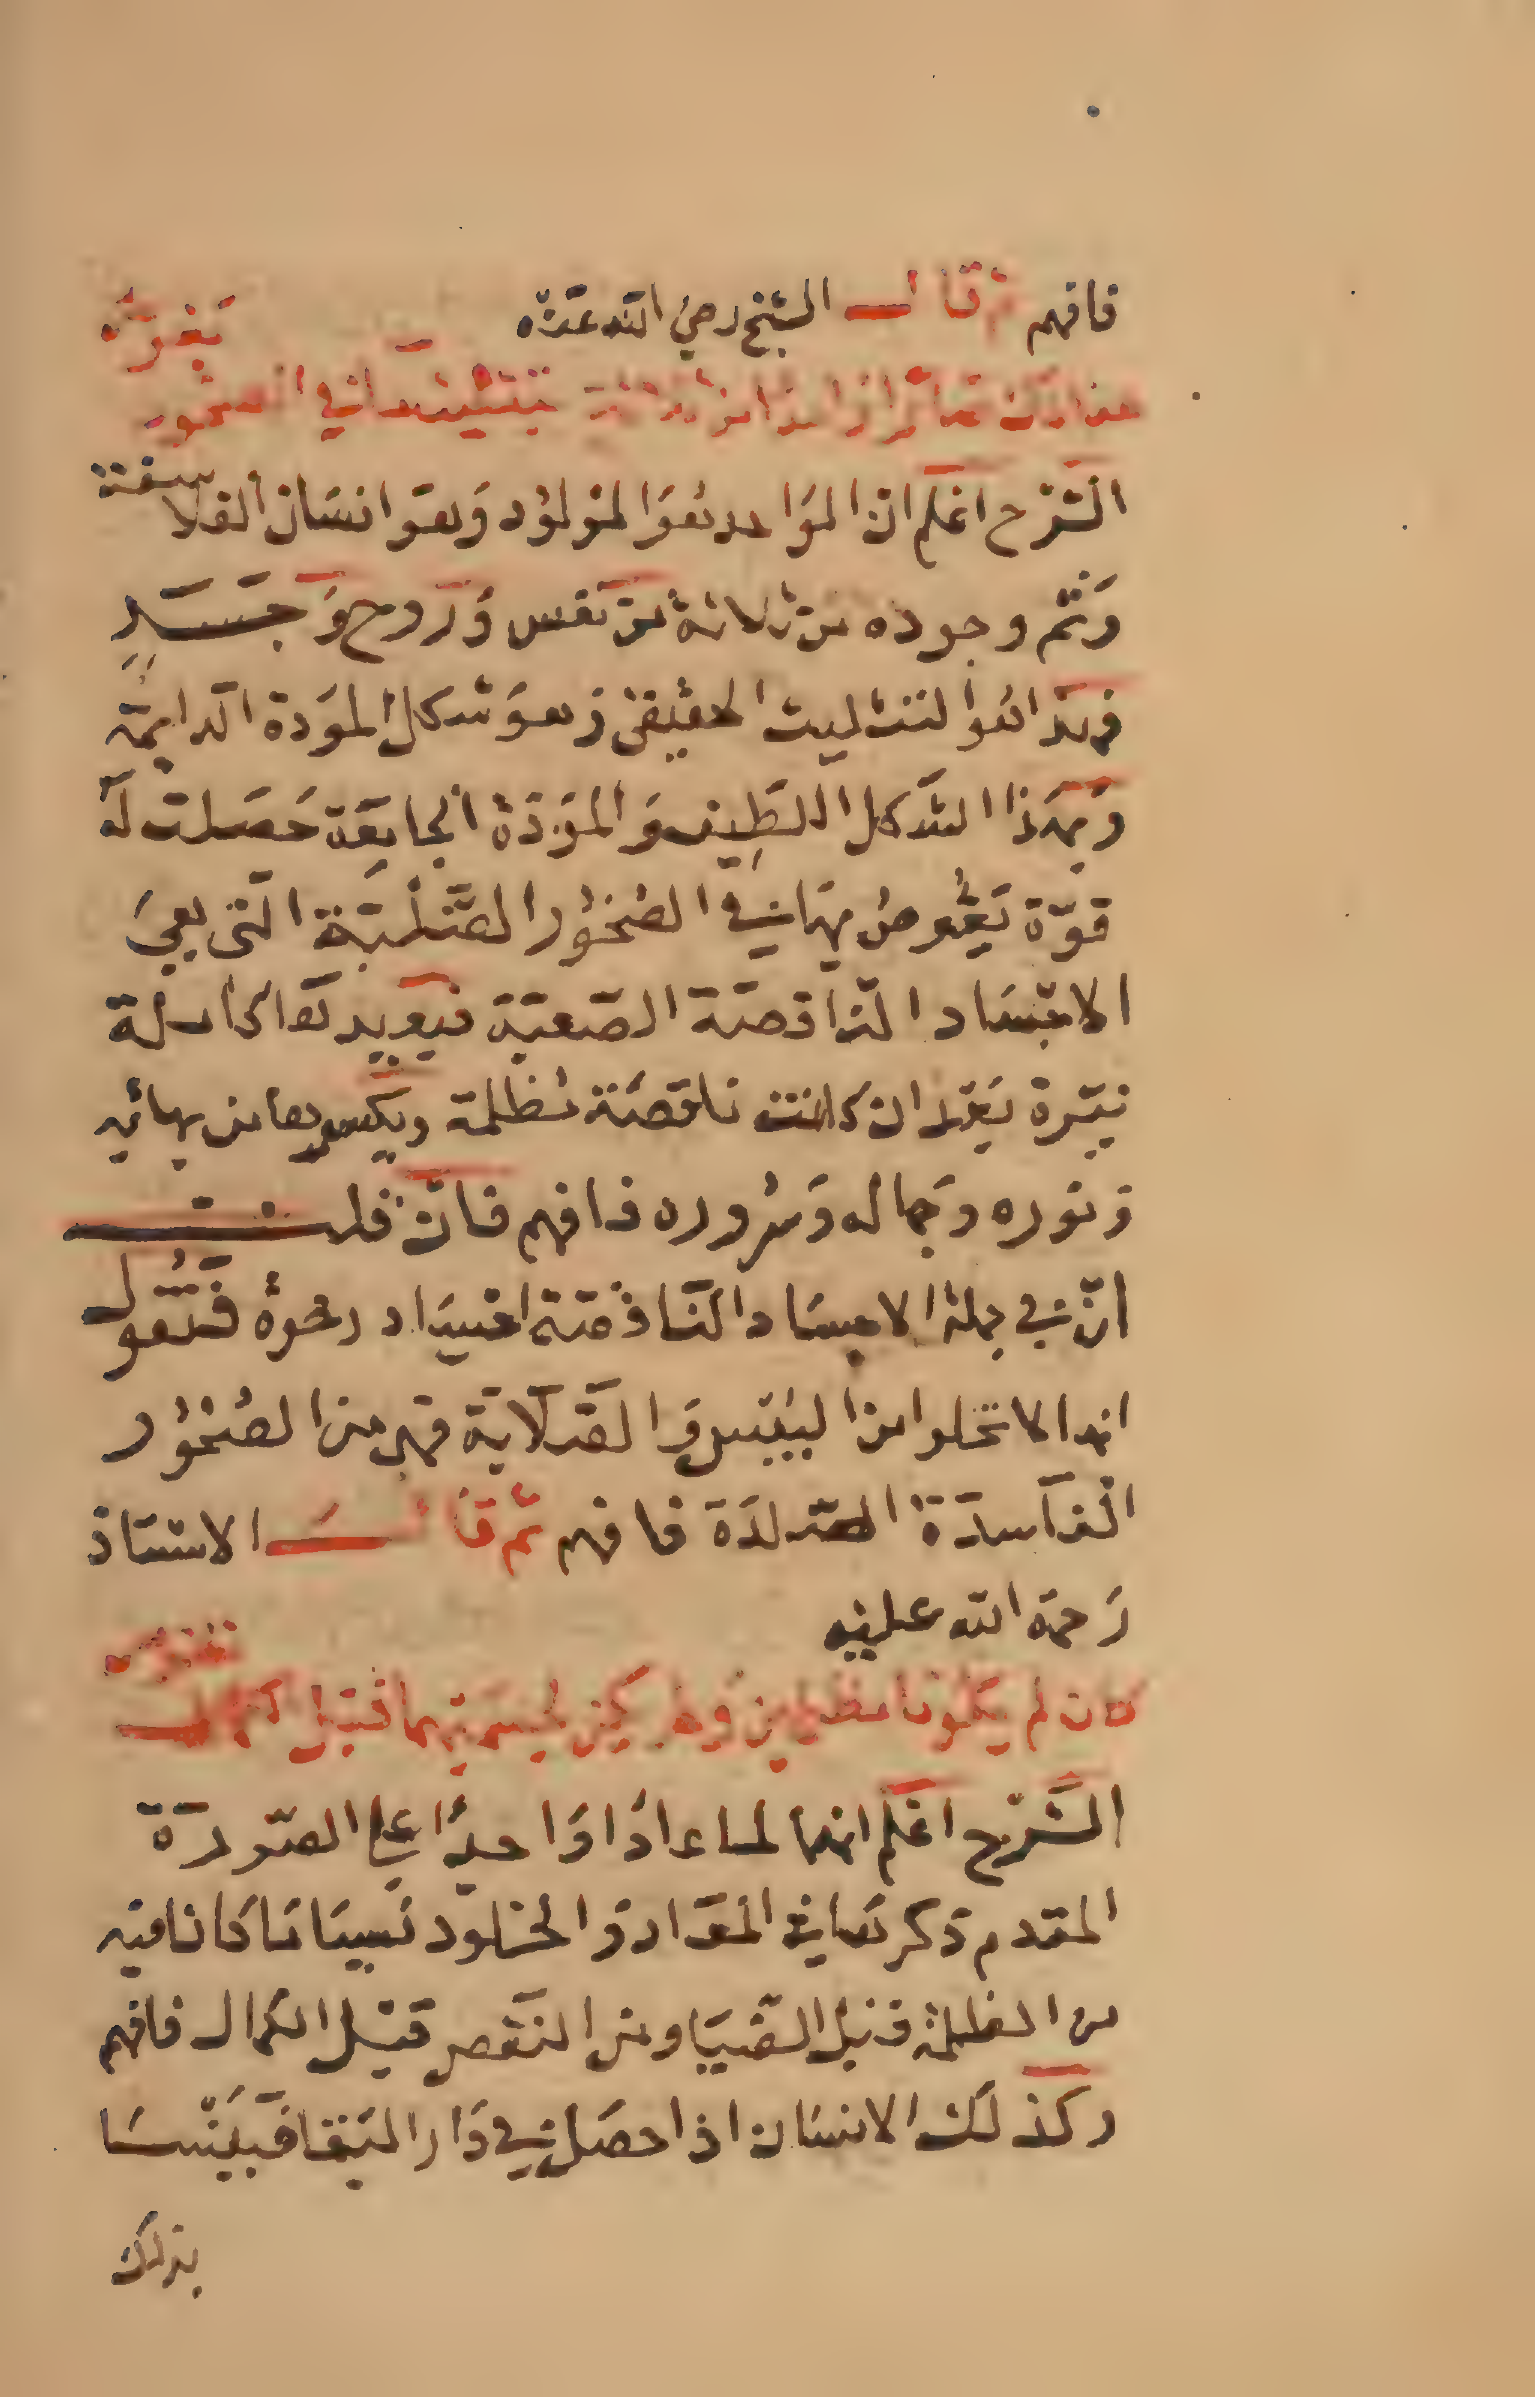 فافهم ثم قال الشيخ رضي الله عنه يغوص
في الصخور
الشرح اعلم ان المواحد هو المولود وهو انسان الفلاسفة
وتم وجوده من ثلاثة من نفس وروح وجسد
فهذا هو التثليث الحقيقي وهو شكل المودة الدايمة
وبهذا الشكل اللطيف والمودة الجامعة حصلت له
قوة يغوص بها في الصخور الصلبة التي هي
الاجساد الناقصة الصعبة فيعيدها كاملة
نيرة بعد ان كانت ناقصة مظلمة ويكسوها من بهائه
ونوره وجماله وسروره فافهم فان قلت
ان في جملة الاجساد الناقصة اجساد رخوة فنقول
انها لا تخلوا من اليبس والصلابة فهي من الصخور
الفاسدة الصلدة فافهم ثم قال الاستاذ
رحمة الله عليه
كان لم يكونا مظلمين ولم يكن لجسميهما قبل
الشرح اعلم انهما لما عادا واحدا على الصورة
المقدم ذكرها في المعاد والخلود نسيا ما كانا فيه
من الظلمة قبل الضيا ومن النقص قبل الكمال فافهم
وكذلك الانسان اذا حصل في دار البقا فينسا
بذلك